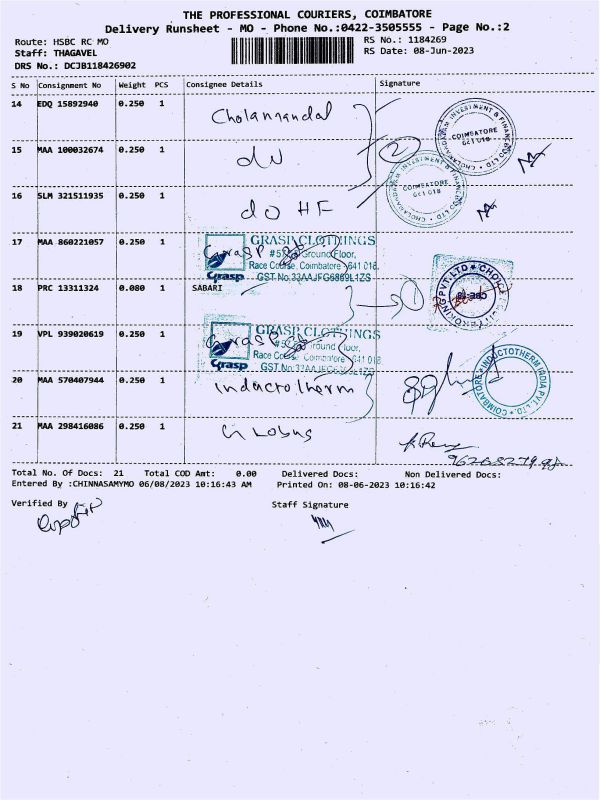 THE PROFESSIONAL COURIERS, COIMBATORE
Delivery Runsheet - MO - Phone No.:0422-3505555 - Page No.:2
Route: HSBC RC MO
RS No.: 1184269
Staff: THAGAVEL
RS Date: 08-Jun-2023
DRS No.: DCJB118426902
S No Consignment No Weight PCS Consignee Details Signature
14 EDQ 15892940 0.250 1 Cholamandal
CHOLAMANDALAM INVESTMENT & FINANCE CO LTD
COIMBATORE
641 018
15 MAA 100032674 0.250 1 do
2
CHOLAMANDALAM INVESTMENT & FINANCE CO LTD
COIMBATORE
641 018
16 SLM 321511935 0.250 1 do HF
17 MAA 860221057 0.250 1 Grasp
GRASP CLOTHINGS
Ground Floor,
Race Course, Coimbatore 641 018.
Grasp GST No:33AAJFG6869L1ZS
18 PRC 13311324 0.080 1 SABARI
PVT.LTD CHOICE
CBE-18
19 VPL 939020619 0.250 1 Grasp
GRASP CLOTHINGS
Ground Floor,
Race Course, Coimbatore 641 018
Grasp
20 MAA 570407944 0.250 1 Inductotherm
INDUCTOTHERM (INDIA) PVT. LTD.
COIMBATORE
21 MAA 298416086 0.250 1 Globus
Total No. Of Docs: 21 Total COD Amt: 0.00 Delivered Docs: Non Delivered Docs:
Entered By :CHINNASAMYMO 06/08/2023 10:16:43 AM Printed On: 08-06-2023 10:16:42
Verified By Staff Signature